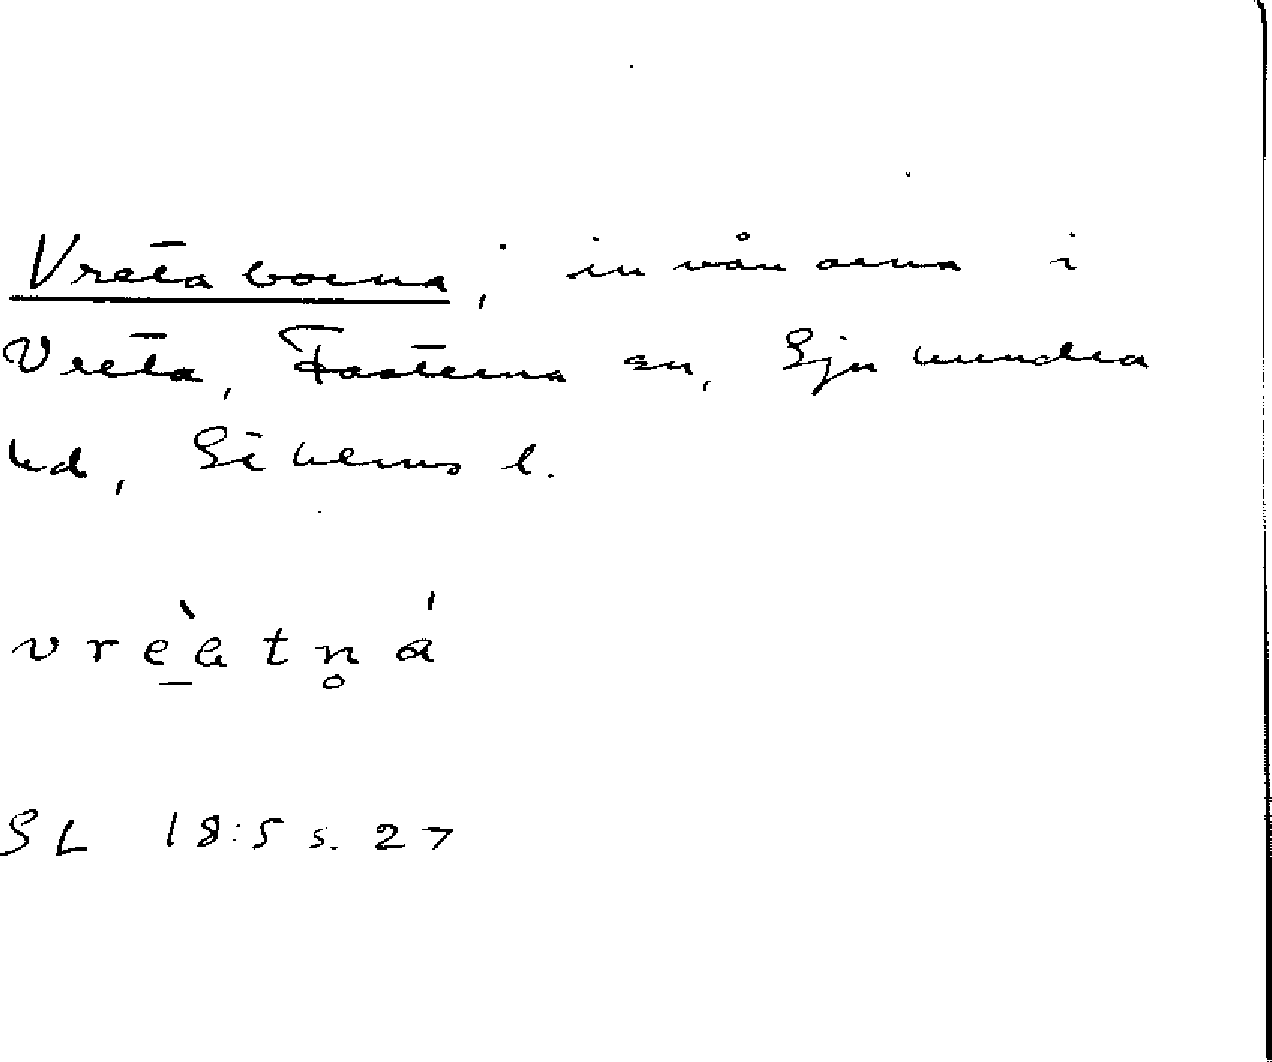 Vretaborna, invånarna i
Vreta, Fasterna sn, Sjuhundra
hd, Sthlms l.
vrèatn̥á
SL 18:5 s. 27